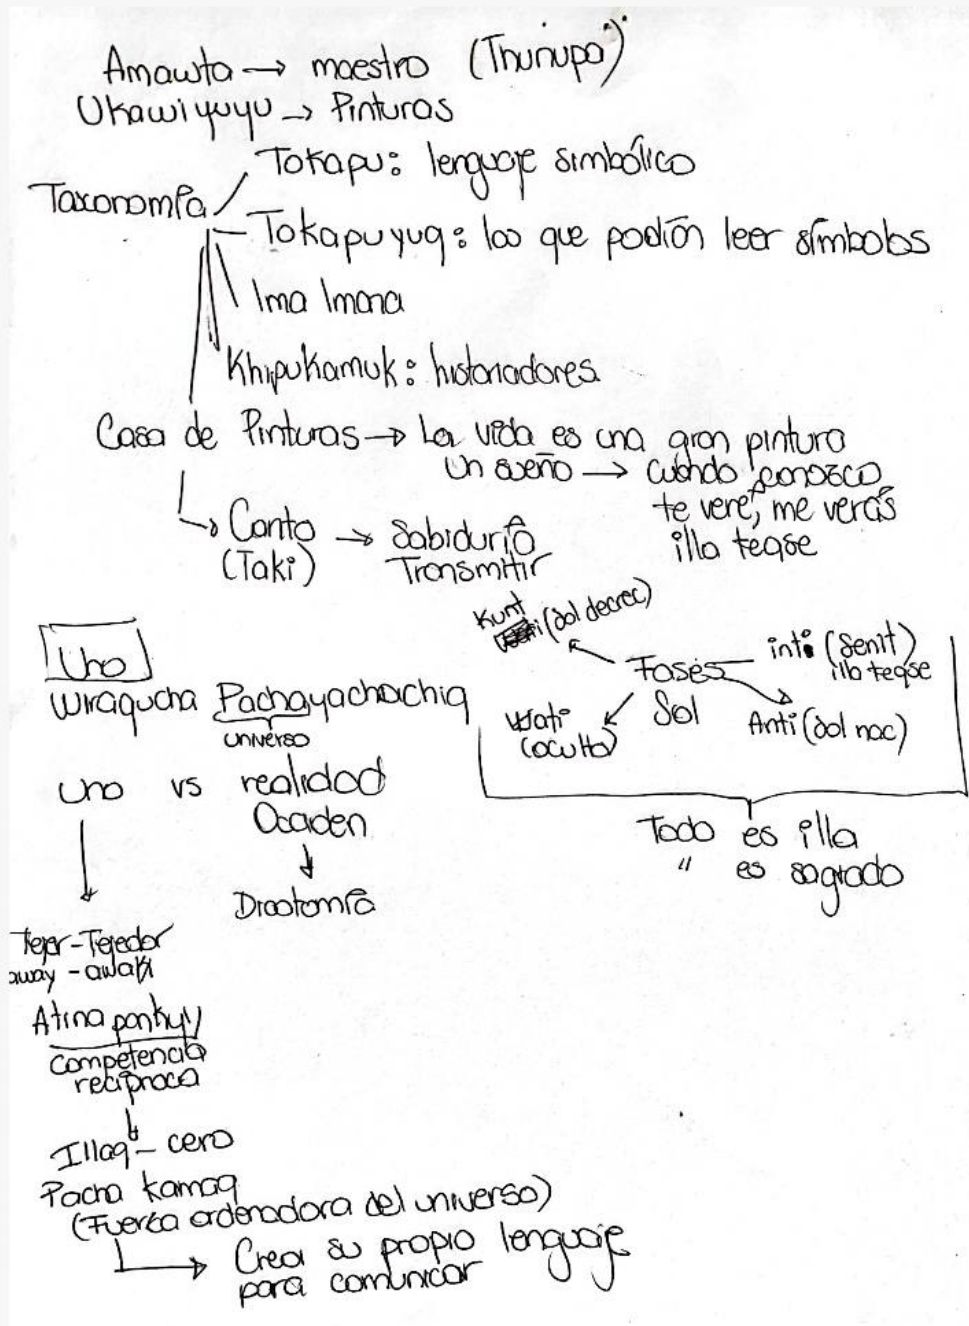 Amawta → maestro (Thunupa)
Ukawiyuyu → Pinturas
Tokapu: lenguaje simbólico
Taxonomía
Tokapuyuq: los que podían leer símbolos
Ima Imana
Khipukamuk: historiadores
Casa de Pinturas → La vida es una gran pintura
Un sueño → cuando conozco
te veré, me verás
illa teqse
Canto → Sabiduría
(Taki) Transmitir
Uno
Wiraqucha Pachayachachiq
universo
uno vs realidad
Occiden
Dicotomía
Kunt
(sol decrec)
Fases
Sol
inti (Senit)
illa teqse
Wati
(oculto)
Anti (sol nac)
Todo es illa
" es sagrado
Tejer - Tejedor
away - awaq
Atina
Competencia
recíproca
Illaq - cero
Pacha Kamaq
(Fuerza ordenadora del universo)
Crea su propio lenguaje
para comunicar